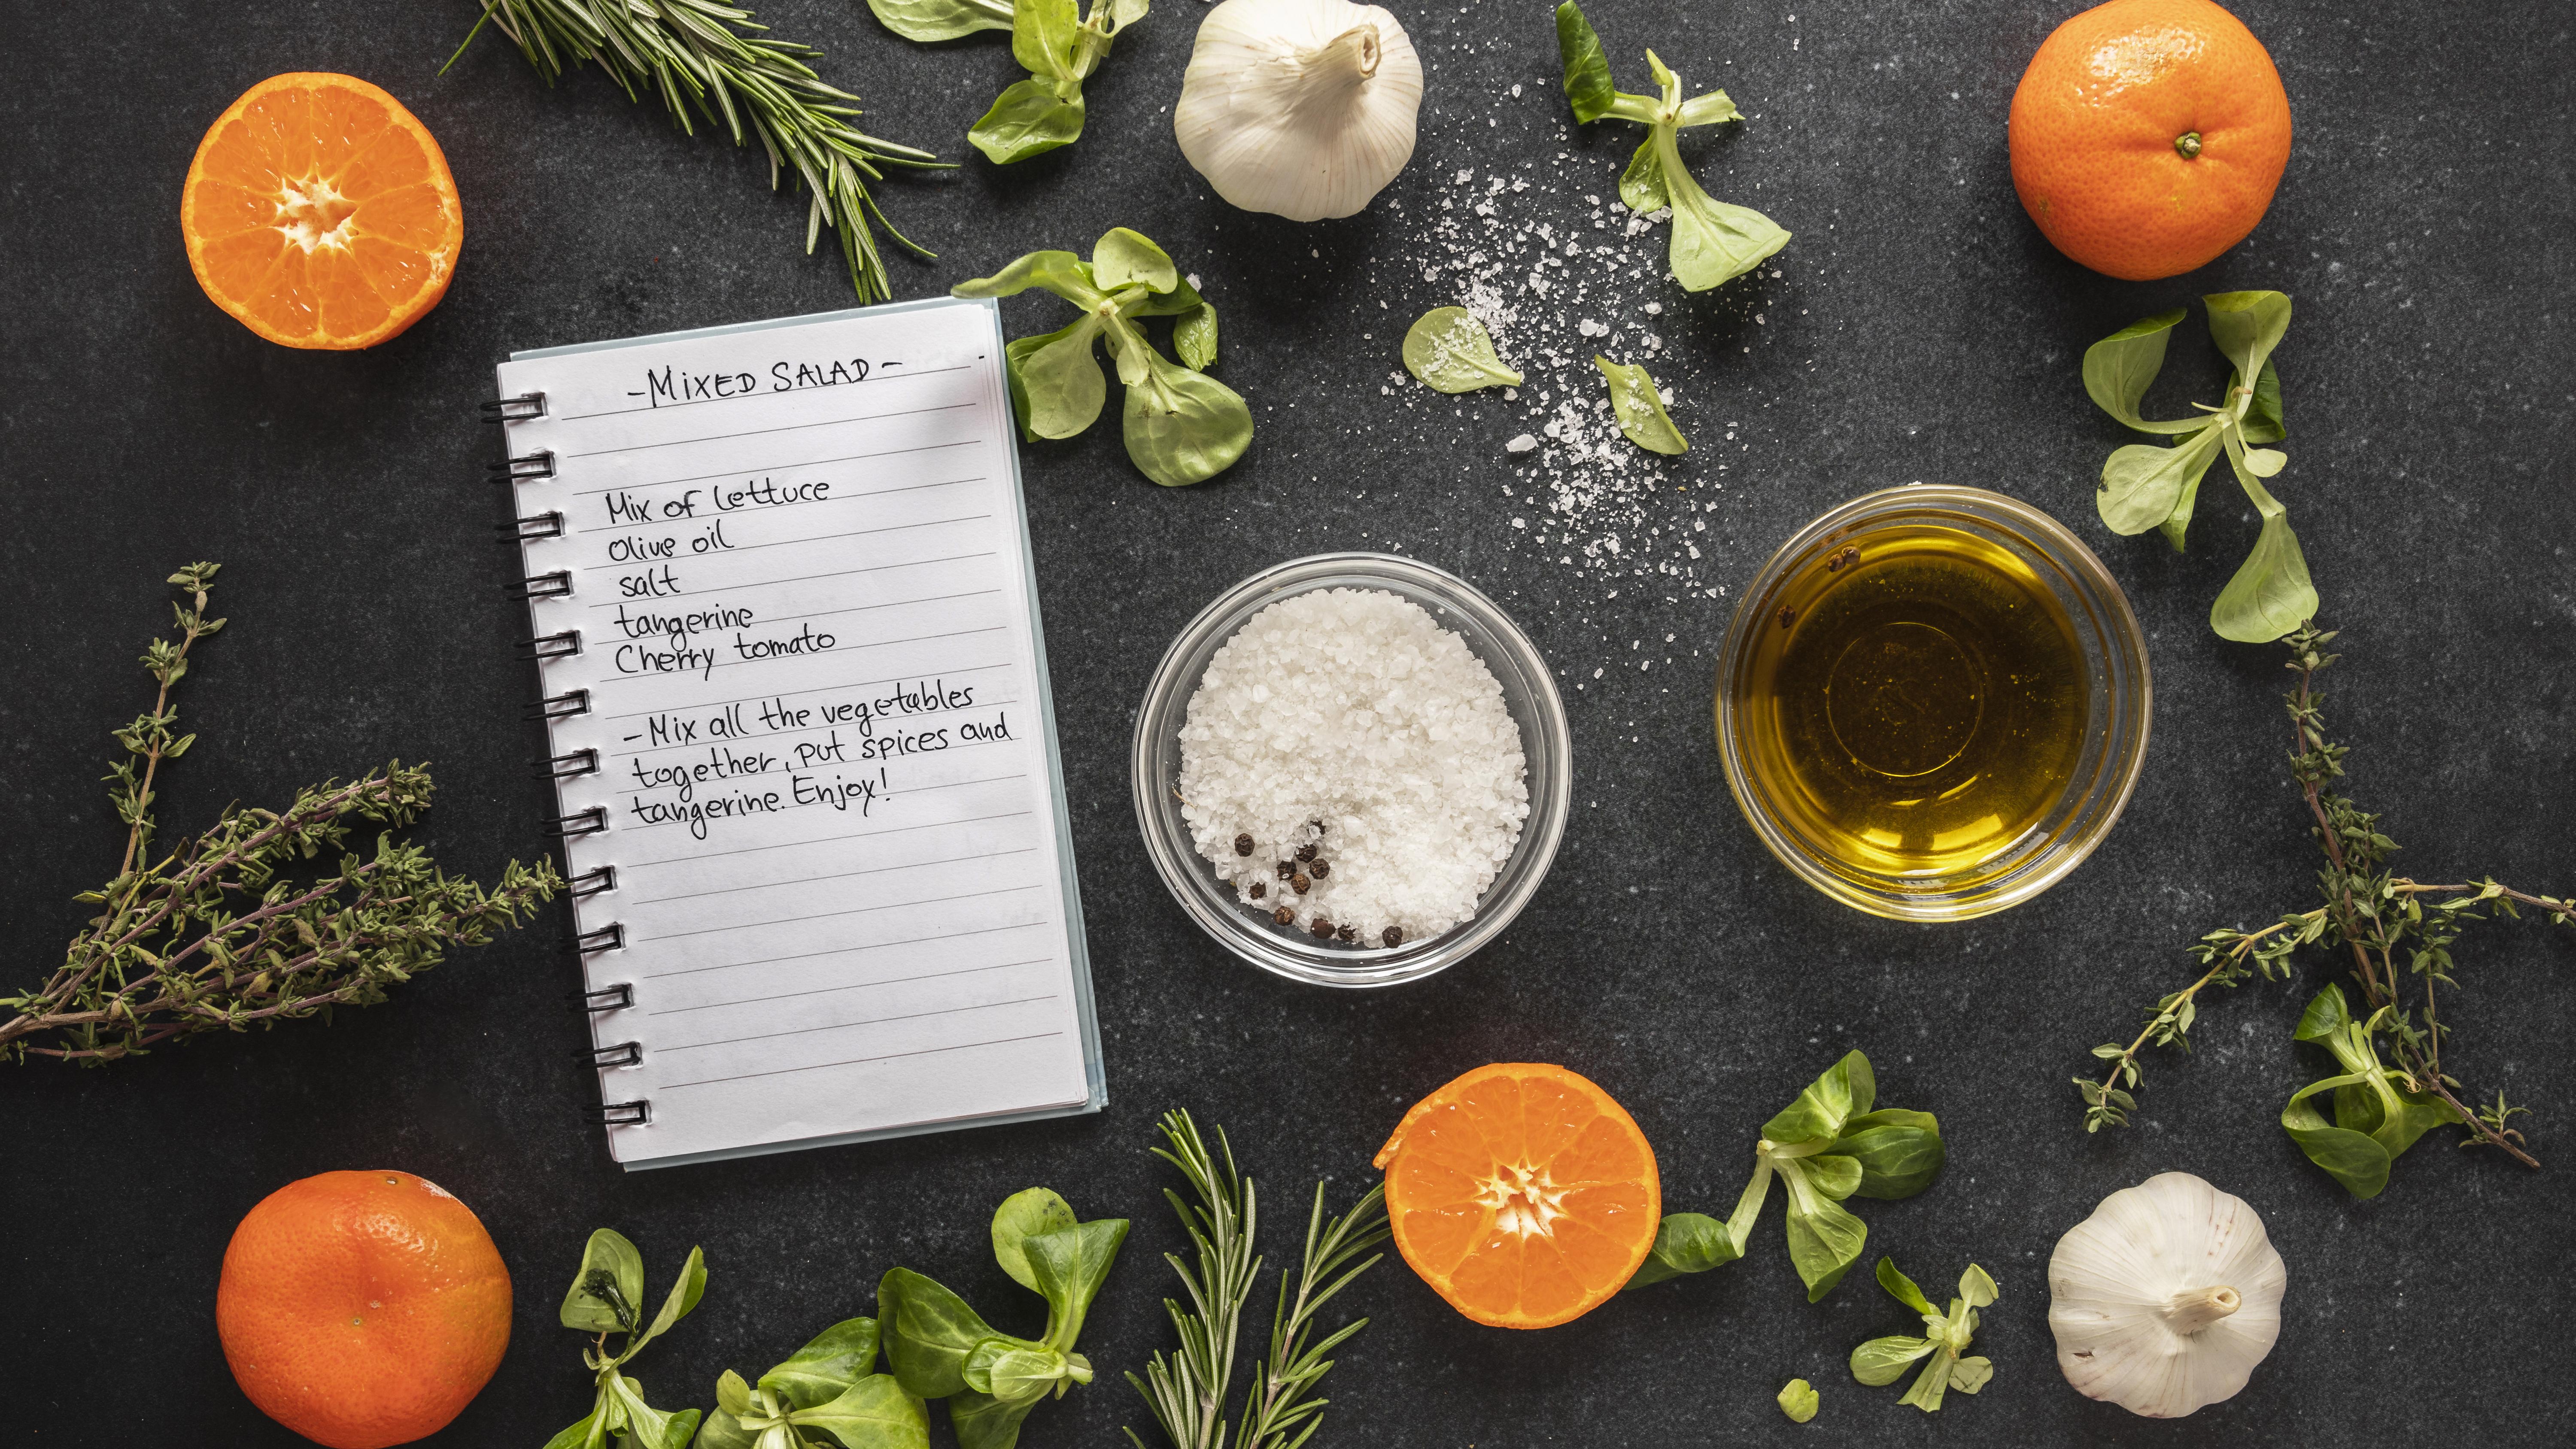 - MiXED SALAD -
Mix of lettuce
olive oil
salt
tangerine
Cherry tomato
- Mix all the vegetables
together, put spices and
tangerine. Enjoy!